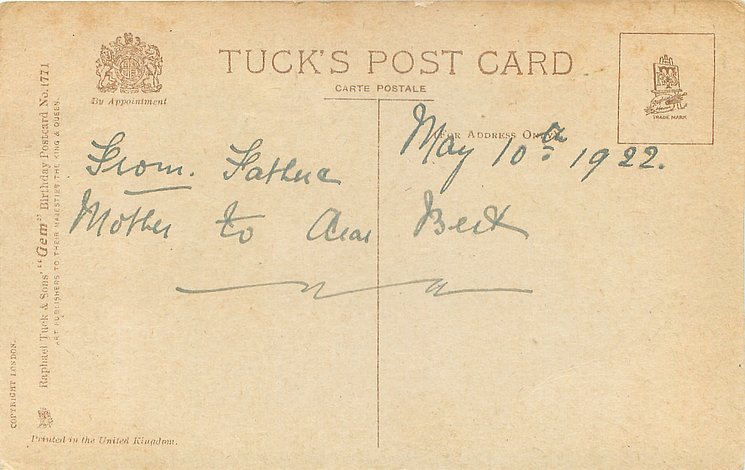 TUCK'S POST CARD
CARTE POSTALE
By Appointment
(FOR ADDRESS ONLY)
TRADE MARK
May 10th 1922.
From. Father
Mother to dear Bert
Raphael Tuck & Sons' "Gem" Birthday Postcard No. 1771
ART PUBLISHERS TO THEIR MAJESTIES THE KING & QUEEN.
COPYRIGHT LONDON.
Printed in the United Kingdom.